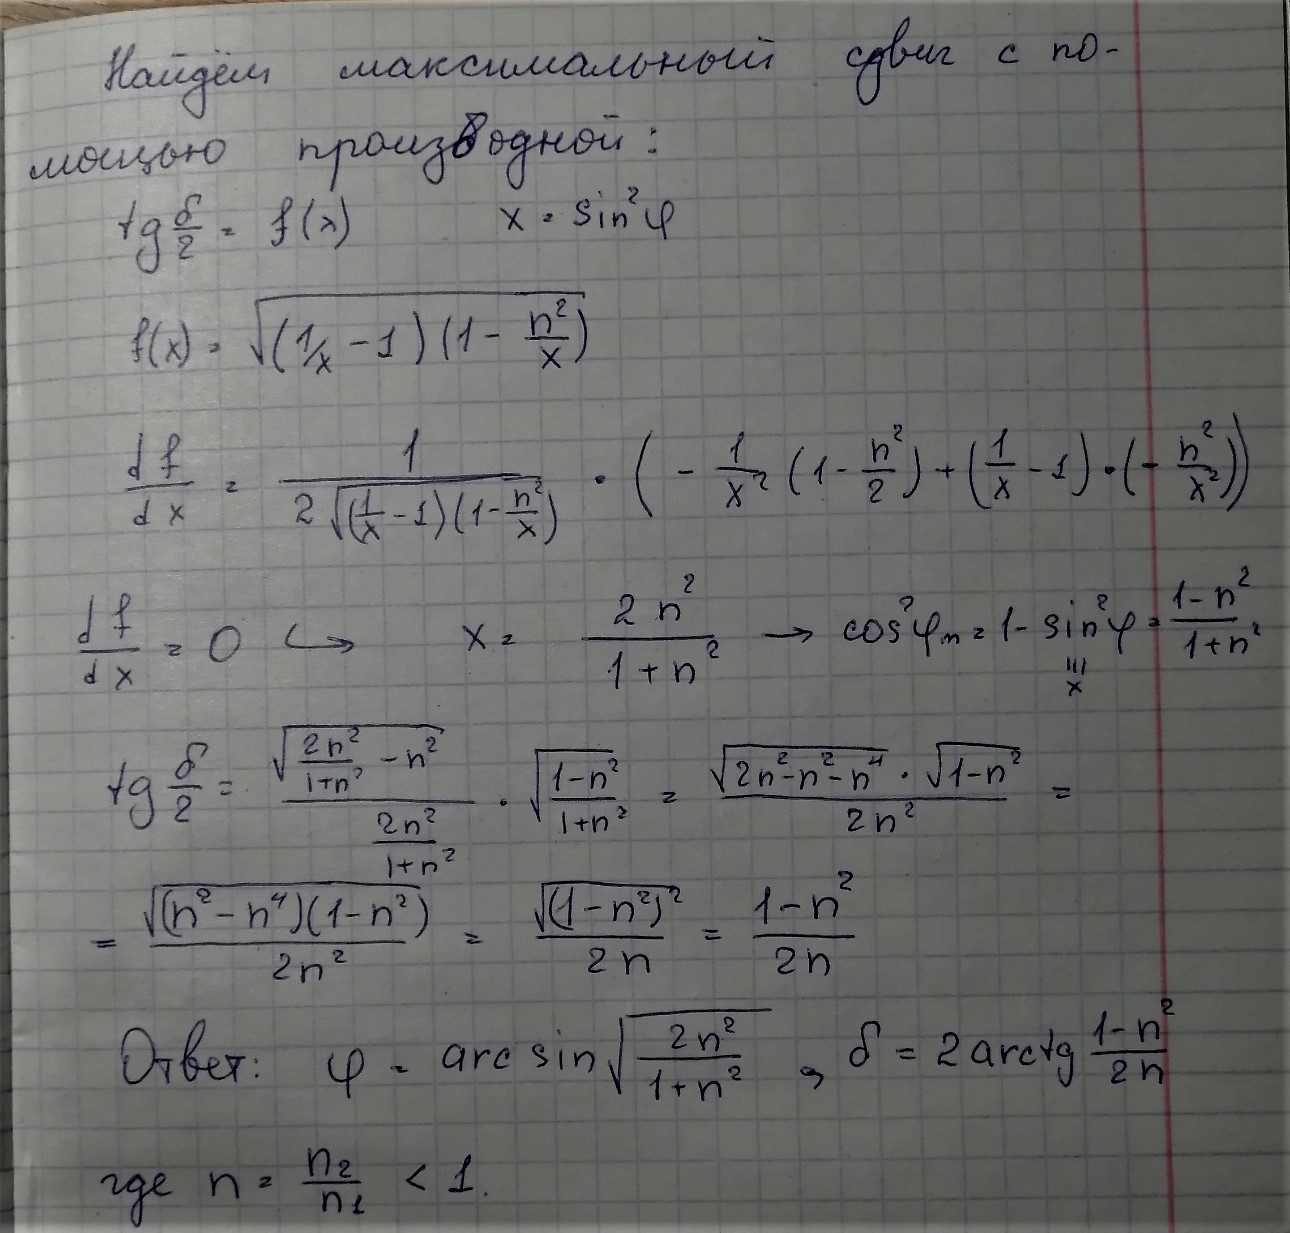 Найдём максимальный сдвиг с по-
мощью производной:
tg δ/2 = f(x)    x = sin²φ
f(x) = √((1/x − 1)(1 − n²/x))
df/dx = 1/(2√((1/x − 1)(1 − n²/x))) · (− 1/x² (1 − n²/2) + (1/x − 1)·(− n²/x²))
df/dx = 0 ↪ x = 2n²/(1+n²) → cos²φₘ = 1 − sin²φ = (1−n²)/(1+n²)
≡ x
tg δ/2 = √(2n²/(1+n²) − n²)/(2n²/(1+n²)) · √((1−n²)/(1+n²)) = (√(2n²−n²−n⁴) · √(1−n²))/(2n²) =
= √((n²−n⁴)(1−n²))/(2n²) = √((1−n²)²)/(2n) = (1−n²)/(2n)
Ответ: φ = arcsin √(2n²/(1+n²)), δ = 2arctg (1−n²)/(2n)
где n = n₂/n₁ < 1.